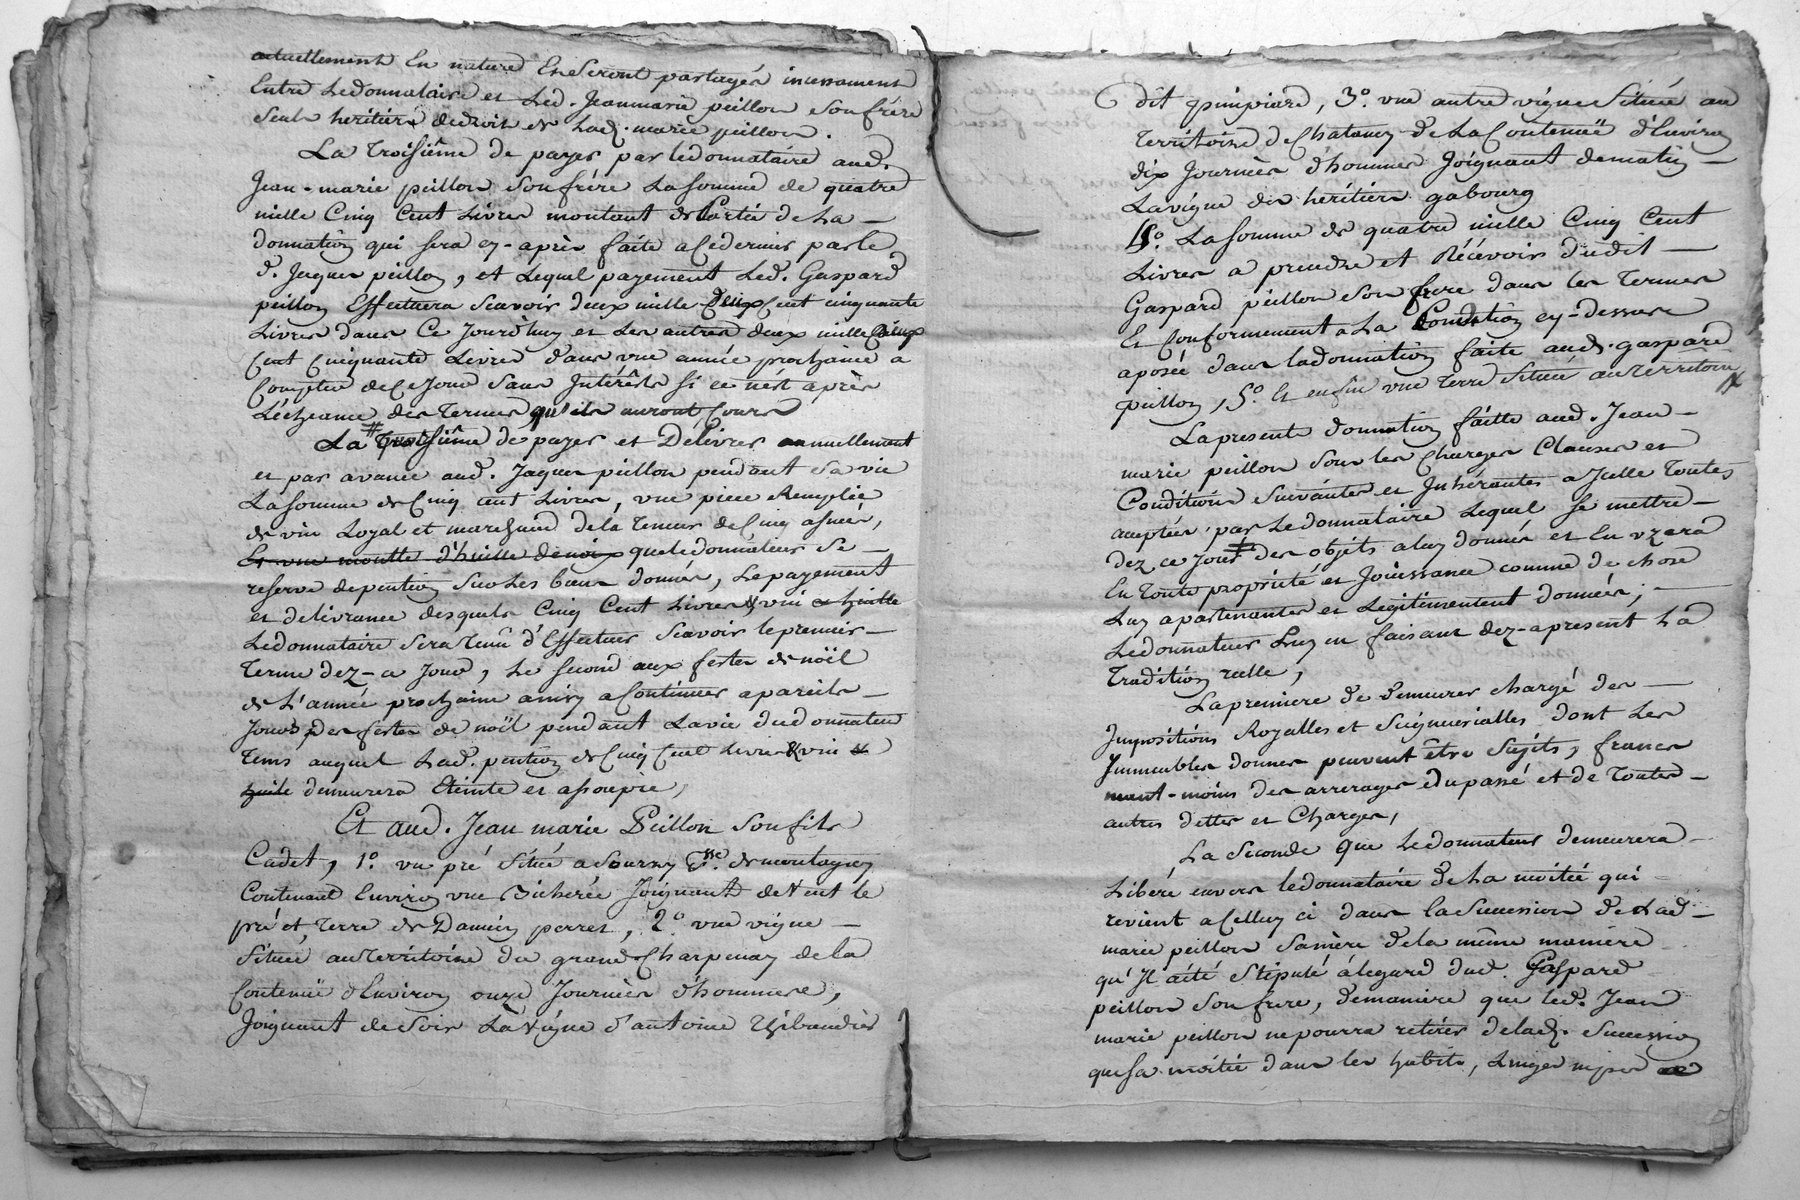 actuellement En nature Et Seront partagés incessament
Entre Ledonnataire et Led. Jeanmarie peillon Son frère
Seuls héritiers dedroit de Lad. marie peillon.
La Troisiême de payer par ledonnataire aud.
Jean-marie peillon Son frére La somme de quatre
mille Cinq Cent Livres montant de Partie de La
donnation qui sera cy-après faite a Cedernier par le
d. Jaques peillon, et Lequel payement Led. Gaspard
peillon Effectuera Scavoir deux mille deux Cent cinquante
Livres dans Ce Jourd'huy et Les autres deux mille deux
Cent Cinquante Livres dans une année prochaine a
Compter de Ce Jour Sans Intérêts Si ce n'est après
L'échéance des Termes qu'ils auront Cours
La Troisiême de payer et Délivrer annuellement
et par avance aud. Jaques peillon pendant Sa vie
La somme de Cinq cent Livres, une piece Remplie
de vin Loyal et marchand de la Teneur de Cinq asnées,
Et une moutte d'huille de noix que ledonnateur Se
reserve de pention Sur Les biens donnés, Le payement
et délivrance desquels Cinq Cent Livres & vin & huille
Ledonnataire Sera tenu d'Effectuer Scavoir le premier
Terme dez-a Jour, Le Second aux festes de noël
de L'année prochaine ainsy a Continuer a pareils
Jours des festes de noël pendant La vie dudonnateur
Tems auquel Lad. pention de Cinq Cent Livres & vin &
huile demeurera Eteinte et assoupie,
Et aud. Jean marie Peillon Son fils
Cadet, 1.º un pré Situé a Sourzy Psse. de montagny
Contenant Environ une Bicherée Joignant de vent le
pré et Terre de Damien perret, 2.º une vigne
Située au Territoire du grand Charpenay de la
Contenuë d'Environ onze Journées d'hommes,
Joignant de Soir La vigne d'antoine Thibaudier
dit pimpiard, 3.º une autre vigne Située au
Territoire de Chatanay de La Contenuë d'Environ
dix Journées d'hommes Joignant de matin
La vigne des héritiers gabourg
4.º La somme de quatre mille Cinq Cent
Livres a prendre et Récévoir dudit
Gaspard peillon Son frere dans les Termes
Et Conformement a La Condition cy-dessus
aposée dans la donnation faite aud. gaspard
peillon, 5.º Et enfin une Terre Située au Territoire
La presente donnation faitte aud. Jean
marie peillon Sous les Charges Clauses et
Conditions Suivantes et Inhérantes a Icelle Toutes
acceptées par Le donnataire Lequel Se mettra
dez ce jour des objets a luy donnés et En uzera
En Toute propriété et Joüissance comme de chose
Luy apartenantes et Légitimement données,
Le donnateur Luy en faisant dez-apresent La
Tradition réelle,
La premiere de demeurer chargé des
Impositions Royalles et Seigneurialles dont Les
Immeubles donnés peuvent être Sujets, francs
neant-moins des arrerages du passé et de Toutes
autres dettes et Charges,
La Seconde que Ledonnateur demeurera
Libéré envers ledonnataire de La moitié qui
revient a Celluy ci dans la Succession de Lad.
marie peillon Sa mère de la même manière
qu'Il aété Stipulé àlegard dud. Gaspard
peillon Son frere, de maniere que led. Jean
marie peillon ne pourra retirer de lad. Succession
que Sa moitié dans les habits, Linges